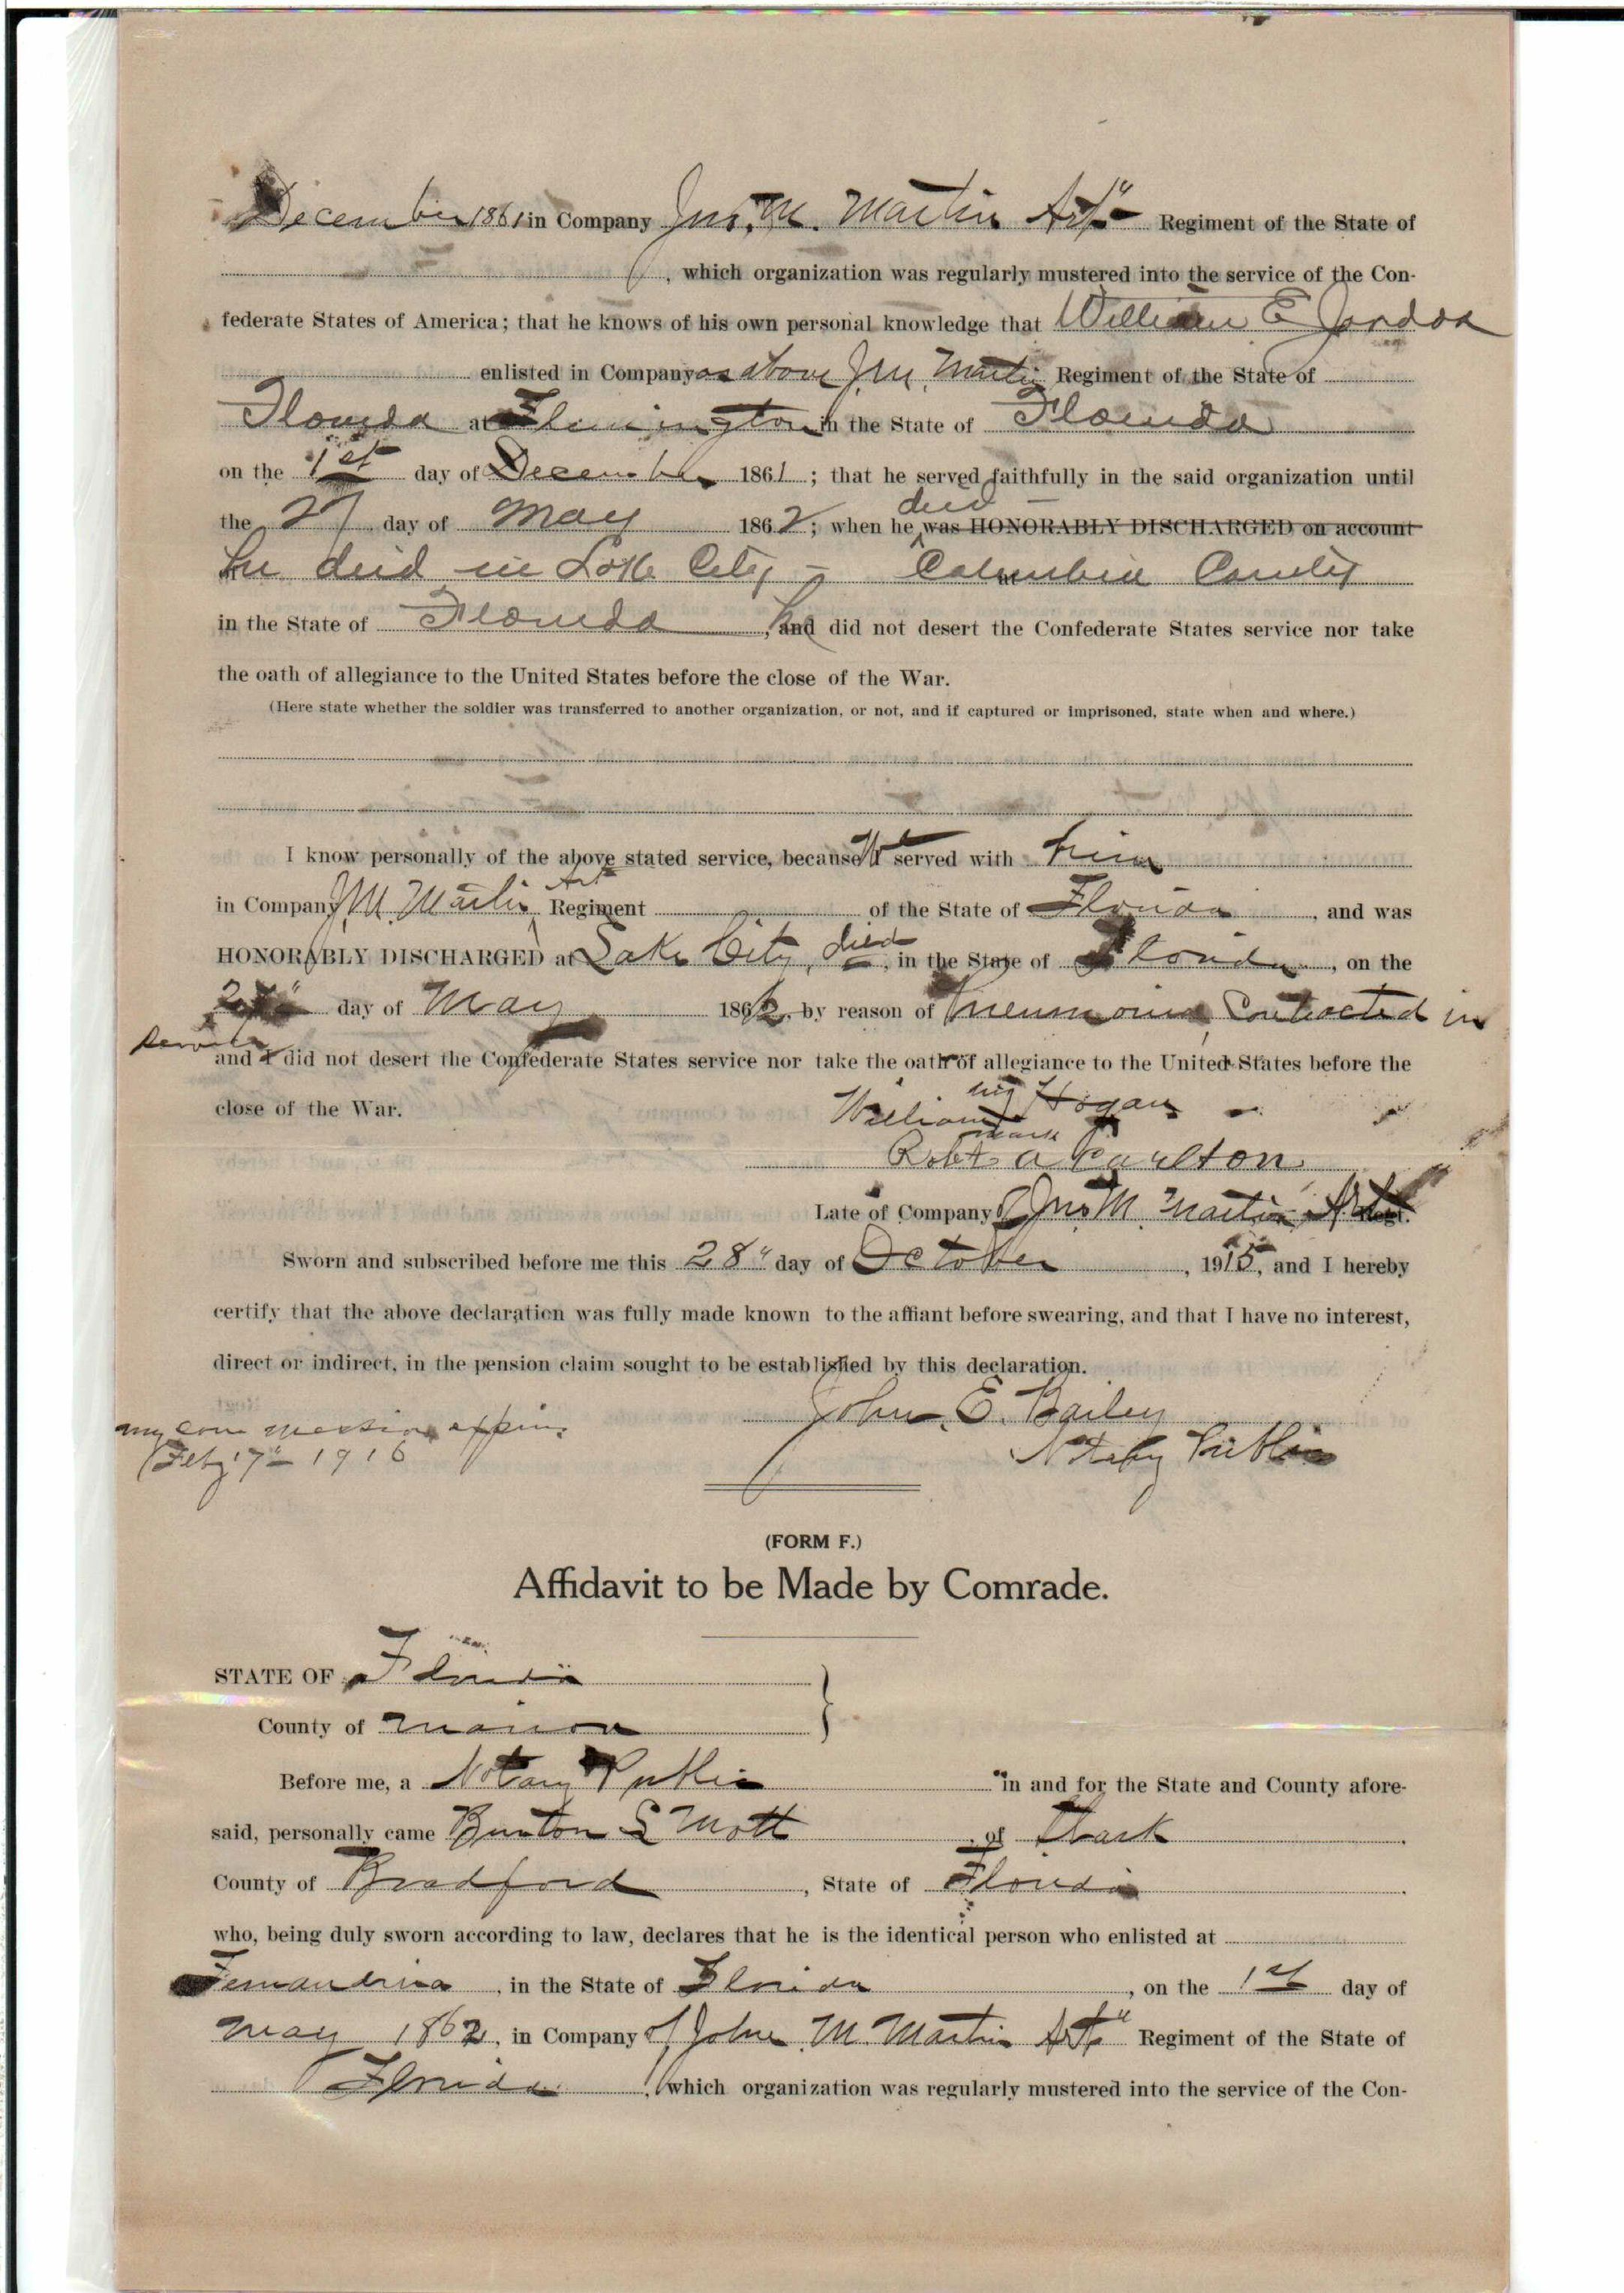 December 1861 in Company Jno. M. Martin Arty Regiment of the State of
, which organization was regularly mustered into the service of the Con-
federate States of America; that he knows of his own personal knowledge that William E Jordon
enlisted in Company as above J.M. Martin Regiment of the State of
Florida at Flemington in the State of Florida
on the 1st day of December 1861; that he served faithfully in the said organization until
died
the 27 day of May 1862; when he was HONORABLY DISCHARGED on account
he died in Lake City - Columbia County
in the State of Florida, he and did not desert the Confederate States service nor take
the oath of allegiance to the United States before the close of the War.
(Here state whether the soldier was transferred to another organization, or not, and if captured or imprisoned, state when and where.)
I know personally of the above stated service, because We served with him
in Company J.M. Martin Art Regiment of the State of Florida, and was
HONORABLY DISCHARGED at Lake City, died, in the State of Florida, on the
27" day of May 1862, by reason of Pneumonia Contracted in
service
and I did not desert the Confederate States service nor take the oath of allegiance to the United States before the
close of the War.
William his mark Hogan
Robt a Carlton
Late of Company of Jno M. Martin Art Regt.
Sworn and subscribed before me this 28" day of October, 1915, and I hereby
certify that the above declaration was fully made known to the affiant before swearing, and that I have no interest,
direct or indirect, in the pension claim sought to be established by this declaration.
John E. Bailey
Notary Public
my commession expires
Feby 17" 1916
(FORM F.)
Affidavit to be Made by Comrade.
STATE OF Florida
County of Marion
Before me, a Notary Public in and for the State and County afore-
said, personally came Burton S Mott, of Stark
County of Bradford, State of Florida.
who, being duly sworn according to law, declares that he is the identical person who enlisted at
Fernandina, in the State of Florida, on the 1st day of
May 1862, in Company of John M. Martin Art" Regiment of the State of
Florida, which organization was regularly mustered into the service of the Con-